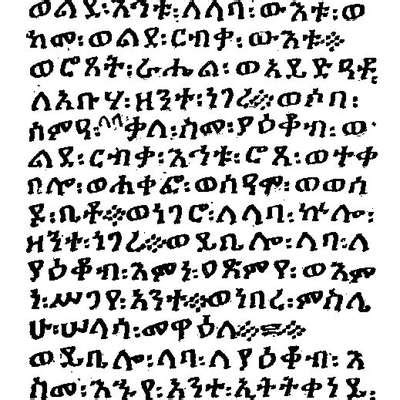 ወልደ፡እኅቱ፡ለላባ፡ውእቱ፡ወ
ከመ፡ወልደ፡ርብቃ፡ውእቱ፨
ወሮጸት፡ራሔል፡ወአይድዓቶ
ለአቡሃ፡ዘንተ፡ነገረ፨ወሶበ፡
ሰምዓ፡ላባ፡ቃለ፡ስመ፡ያዕቆብ፡ወ
ልደ፡ርብቃ፡እኅቱ፡ሮጸ፡ወተቀ
በሎ፡ወሐቀፎ፡ወሰዓሞ፡ወወሰ
ዶ፡ቤቶ፨ወነገሮ፡ለላባ፡ኵሎ፡
ዘንተ፡ነገረ፨ወይቤሎ፡ላባ፡ለ
ያዕቆብ፡እምነ፡ዐጽምየ፡ወእም
ነ፡ሥጋየ፡አንተ፨ወነበረ፡ምስሌ
ሁ፡ሠላሳ፡መዋዕለ፨
ወይቤሎ፡ላባ፡ለያዕቆብ፡እ
ስመ፡እኁየ፡አንተ፡ኢትትቀነይ፡